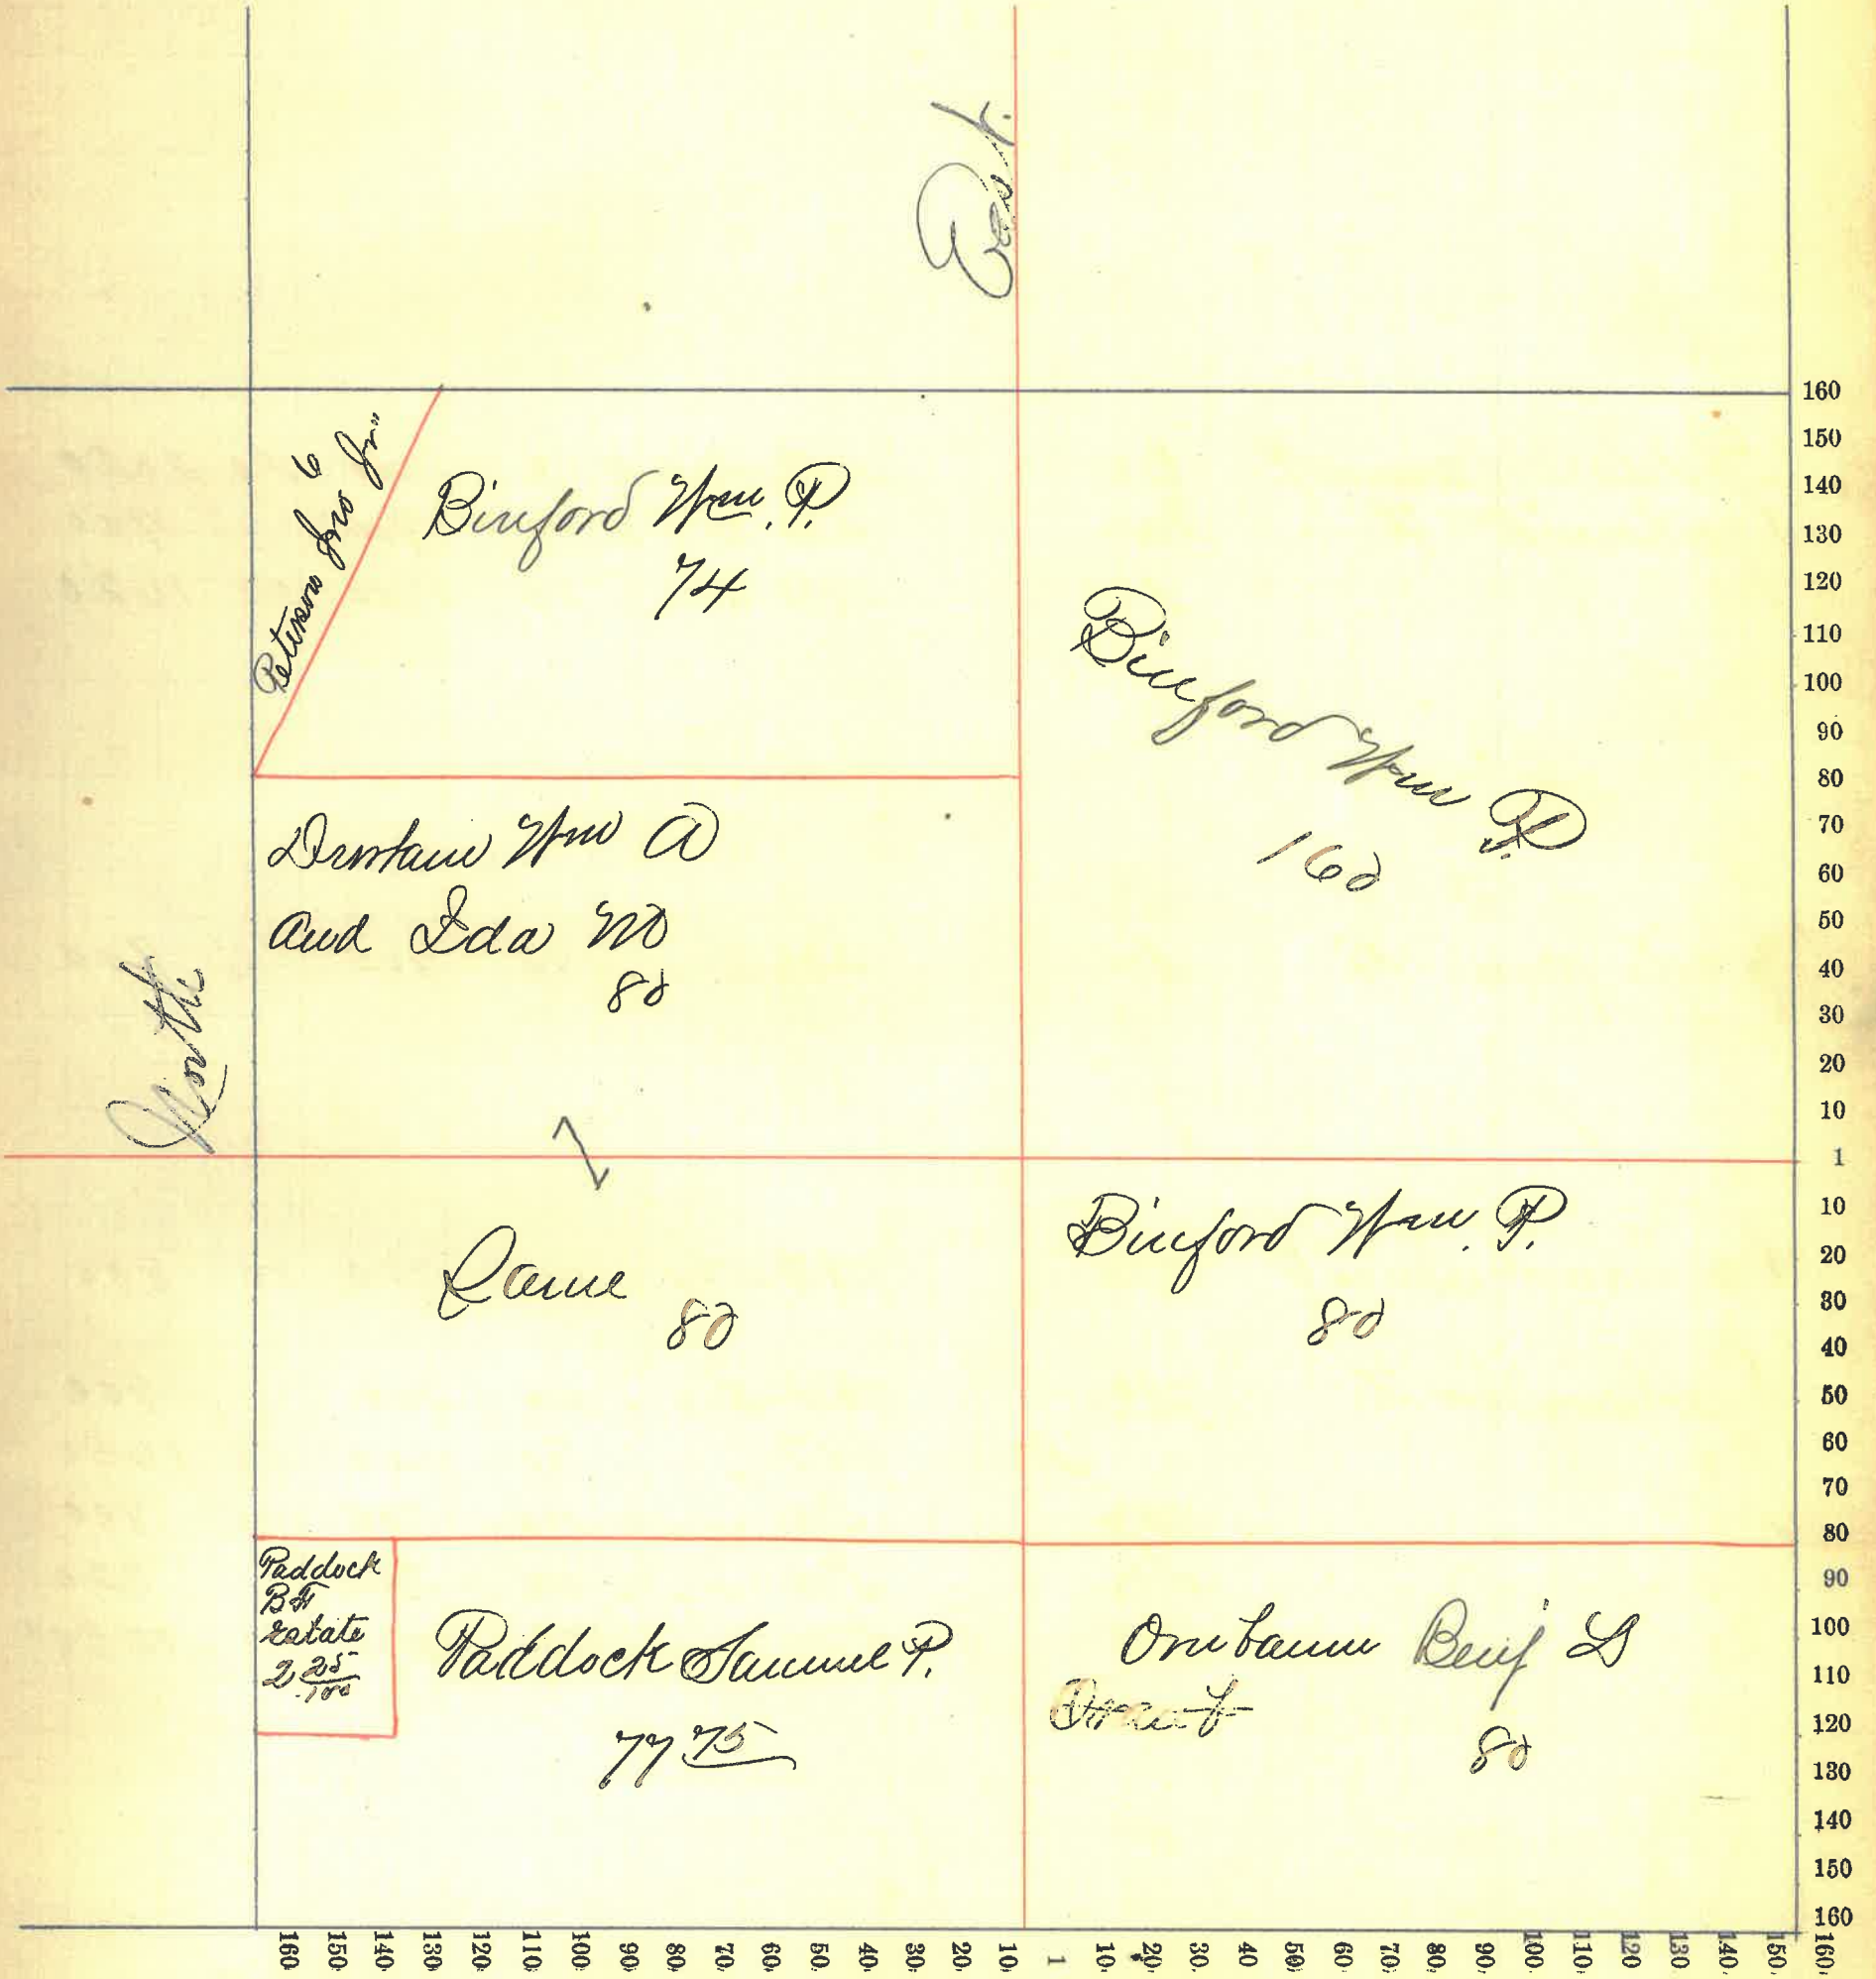 East.
Peterson Jno Jr.
6
Binford Wm. P.
74
Binford Wm P.
160
Wm A
and Ida M
80
North
Same 80
Binford Wm. P.
80
Paddock
BF
Estate
2 25/100
Paddock Samuel P.
77 75
Benj
80
160
150
140
130
120
110
100
90
80
70
60
50
40
30
20
10
1
10
20
30
40
50
60
70
80
90
100
110
120
130
140
150
160
160 150 140 130 120 110 100 90 80 70 60 50 40 30 20 10 1 10 20 30 40 50 60 70 80 90 100 110 120 130 140 150 160